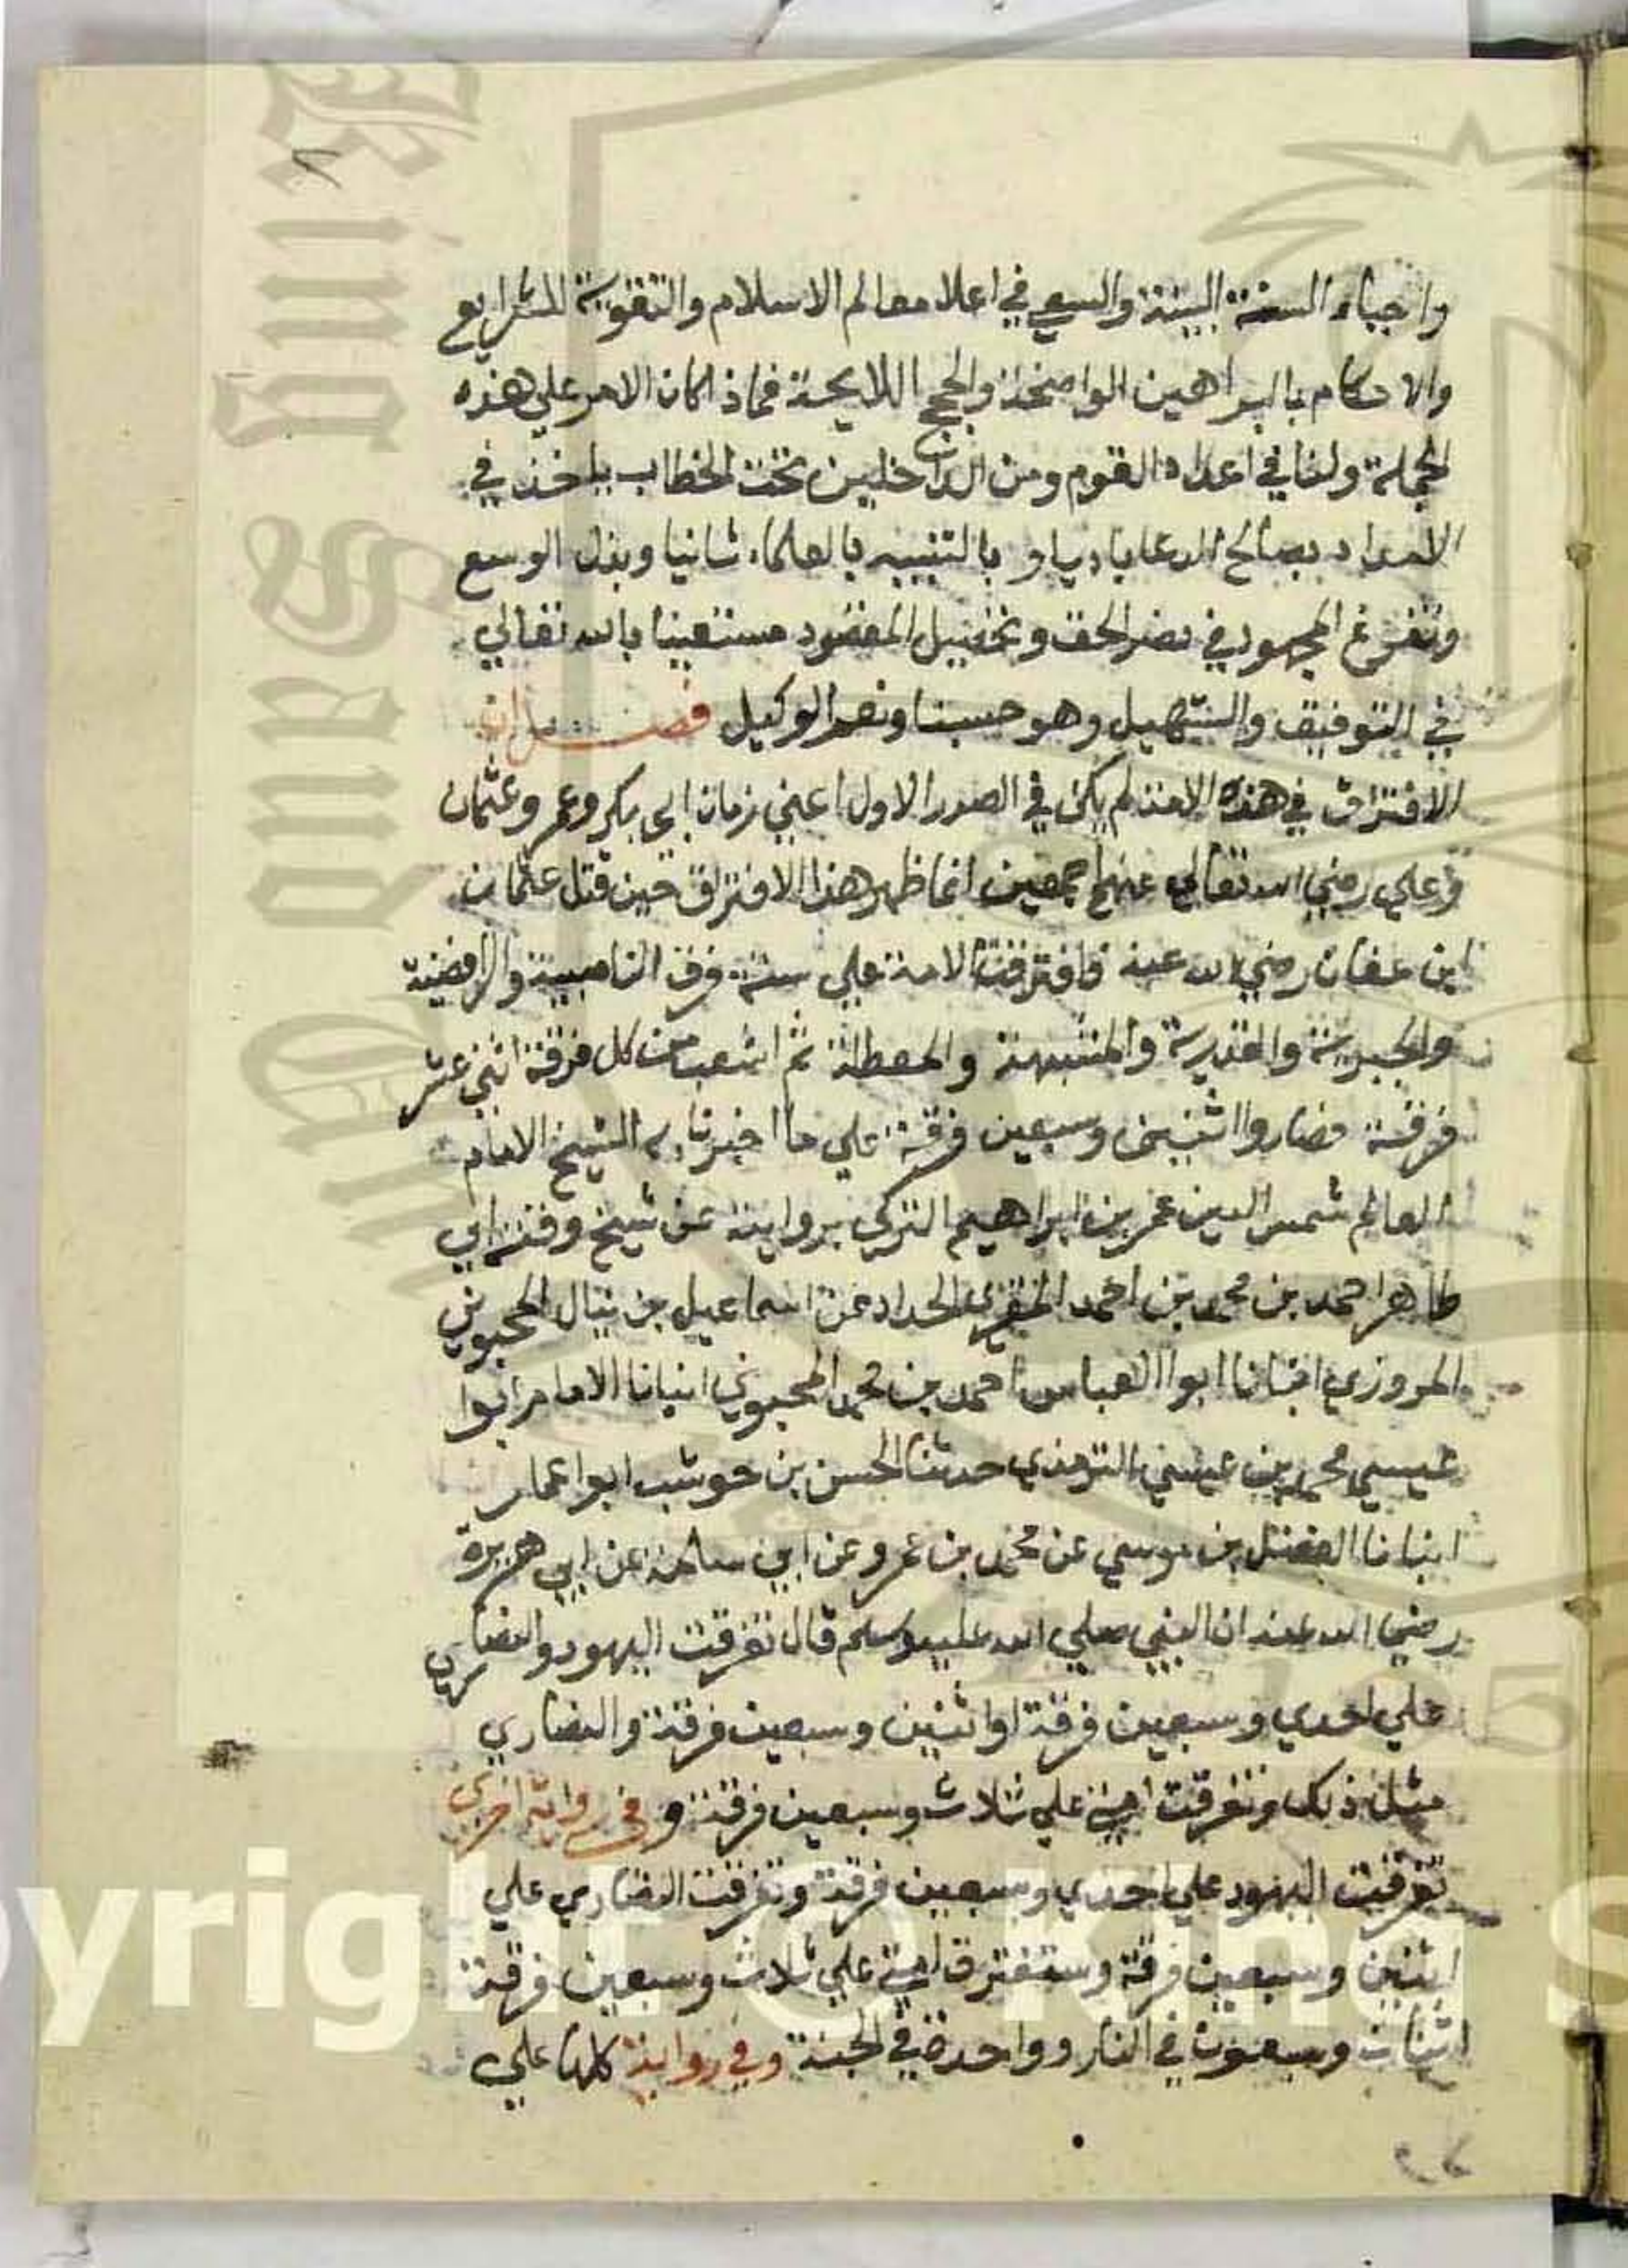 ٨
واحياء السنة البينة والسعي في اعلا معالم الاسلام والتقوية للشرايع
والاحكام بالبراهين الواضحة والحجج اللايحة فماذا كان الامر علي هذه
الجملة ولنا في اعداد القوم ومن الداخلين تحت الخطاب ناخذ في
الامداد بصالح الدعا باديا و بالتنبيه بالعلماء ثانيا وبذل الوسع
وتفرغ المجهود في نصر الحق وتحصيل المقصود مستعينا بالله تعالي
في التوفيق والتسهيل وهو حسبنا ونعم الوكيل فصل ان
الافتراق في هذه الامة لم يكن في الصدر الاول اعني زمان ابي بكر وعمر وعثمان
وعلي رضي الله تعالي عنهم اجمعين انما ظهر هذا الافتراق حين قتل عثمان
ابن عفان رضي الله عنه فافترقت الامة علي ستة فرق الناصبية والرافضية
والجبرية والقدرية والمشبهة والمعطلة ثم انشعبت من كل فرقة اثني عشر
فرقة فصاروا اثنين وسبعين فرقة علي ما اخبرنا به الشيخ الامام
العالم شمس الدين عمر بن ابراهيم التركي بروايته عن شيخ وقته ابي
طاهر احمد بن محمد بن احمد المقري الحداد عن اسماعيل بن ينال المحبوبي
المروزي انبانا ابوا العباس احمد بن محمد المحبوبي انبانا الامام ابوا
عيسي محمد بن عيسي الترمذي حدثنا الحسن بن حوشب ابوا عمار
انبانا الفضل بن موسي عن محمد بن عمرو عن ابي سلمة عن ابي هريرة
رضي الله عنه ان النبي صلي الله عليه وسلم قال تفرقت اليهود والنصاري
علي احدي وسبعين فرقة او اثنين وسبعين فرقة والنصاري
مثل ذلك وتفرقت امتي علي ثلاث وسبعين فرقة و في رواية اخري
تفرقت اليهود علي احدي وسبعين فرقة وتفرقت النصاري علي
اثنين وسبعين فرقة وستفترق امتي علي ثلاث وسبعين فرقة
اثنان وسبعون في النار وواحدة في الجنة وفي رواية كلها علي
King Saud Univ
1957
yright © King S